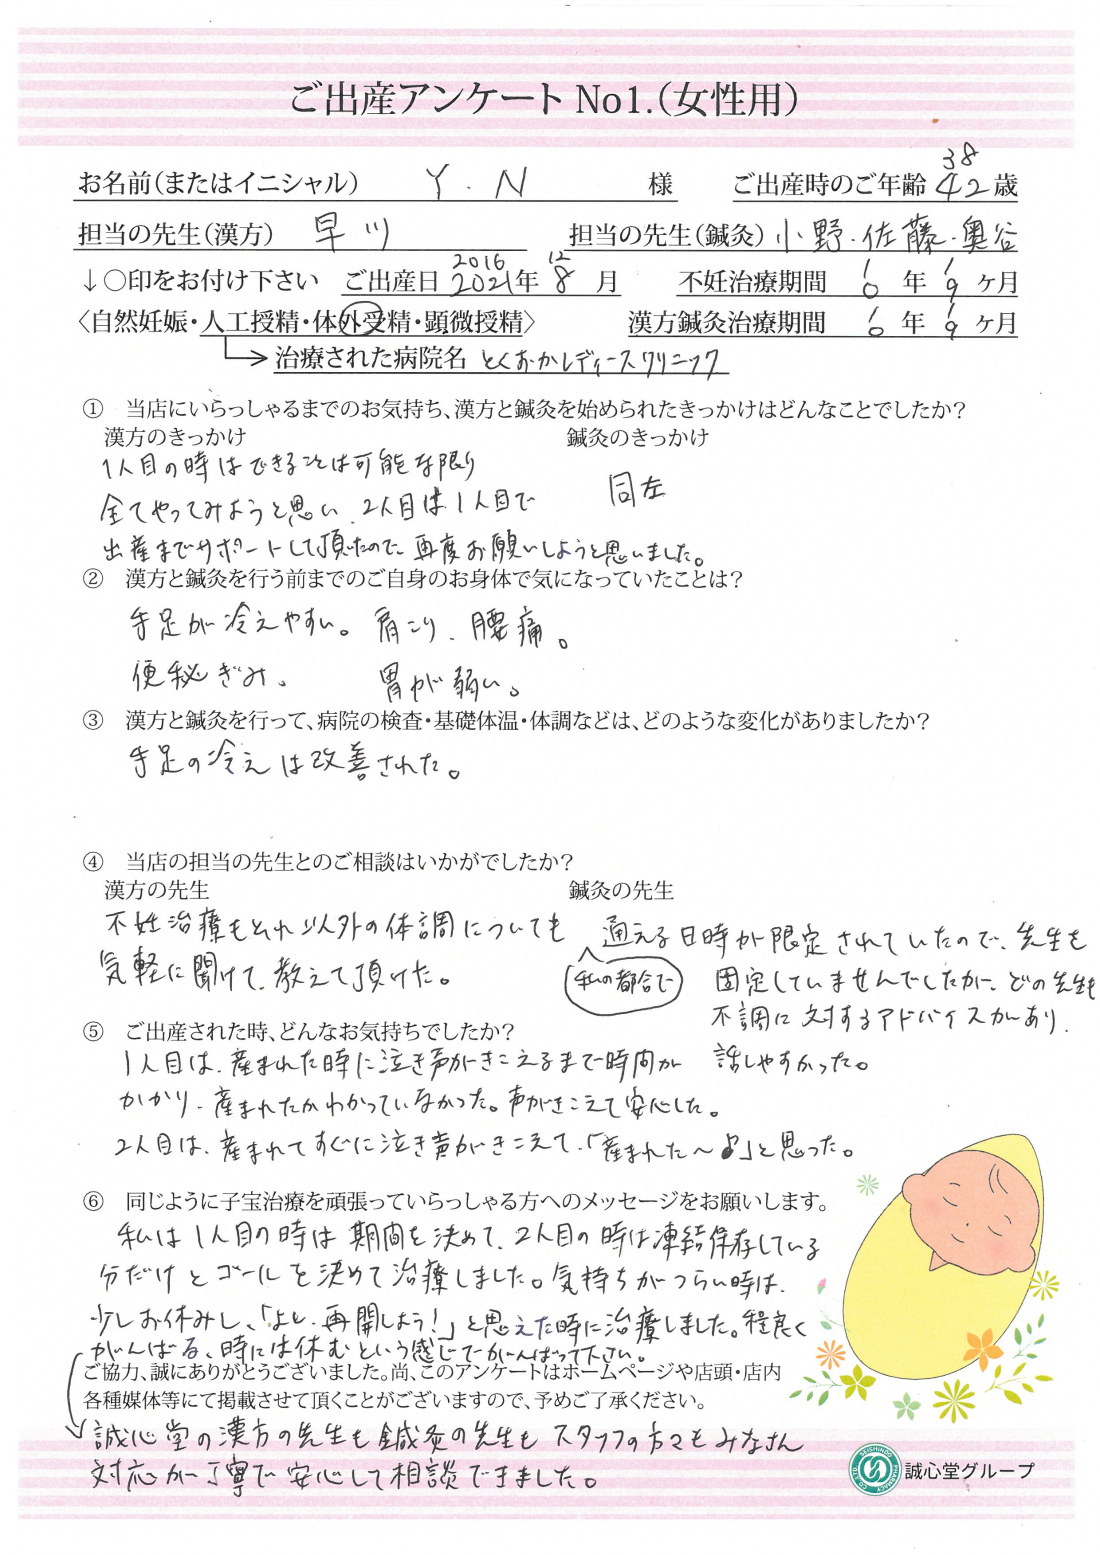 ご出産アンケート No1.(女性用)
38
お名前(またはイニシャル) Y.N 様 ご出産時のご年齢 42歳
担当の先生(漢方) 早川 担当の先生(鍼灸) 小野・佐藤・奥谷
2016 12
↓○印をお付け下さい ご出産日 2021年 8 月 不妊治療期間 1 0 年 1 9 ヶ月
〈自然妊娠・人工授精・体外受精・顕微授精〉 漢方鍼灸治療期間 1 0 年 1 9 ヶ月
治療された病院名 とくおかレディースクリニック
① 当店にいらっしゃるまでのお気持ち、漢方と鍼灸を始められたきっかけはどんなことでしたか?
漢方のきっかけ 鍼灸のきっかけ
1人目の時はできることは可能な限り
全てやってみようと思い、2人目は1人目で 同左
出産までサポートして頂いたので、再度お願いしようと思いました。
② 漢方と鍼灸を行う前までのご自身のお身体で気になっていたことは?
手足が冷えやすい。肩こり、腰痛。
便秘ぎみ。 胃が弱い。
③ 漢方と鍼灸を行って、病院の検査・基礎体温・体調などは、どのような変化がありましたか?
手足の冷えは改善された。
④ 当店の担当の先生とのご相談はいかがでしたか?
漢方の先生 鍼灸の先生
不妊治療もそれ以外の体調についても 通える日時が限定されていたので、先生を
気軽に聞けて、教えて頂けた。 私の都合で 固定していませんでしたが、どの先生も
不調に対するアドバイスがあり、
⑤ ご出産された時、どんなお気持ちでしたか?
1人目は、産まれた時に泣き声がきこえるまで時間が 話しやすかった。
かかり、産まれたかわかっていなかった。声がきこえて安心した。
2人目は、産まれてすぐに泣き声がきこえて、「産まれた〜♪」と思った。
⑥ 同じように子宝治療を頑張っていらっしゃる方へのメッセージをお願いします。
私は1人目の時は期間を決めて、2人目の時は凍結保存している
分だけとゴールを決めて治療しました。気持ちがつらい時は、
少しお休みし、「よし、再開しよう!」と思えた時に治療しました。程良く
がんばる、時には休むという感じでがんばって下さい。
ご協力、誠にありがとうございました。尚、このアンケートはホームページや店頭・店内
各種媒体等にて掲載させて頂くことがございますので、予めご了承ください。
誠心堂の漢方の先生も鍼灸の先生もスタッフの方々もみなさん
対応が丁寧で安心して相談できました。
誠心堂グループ